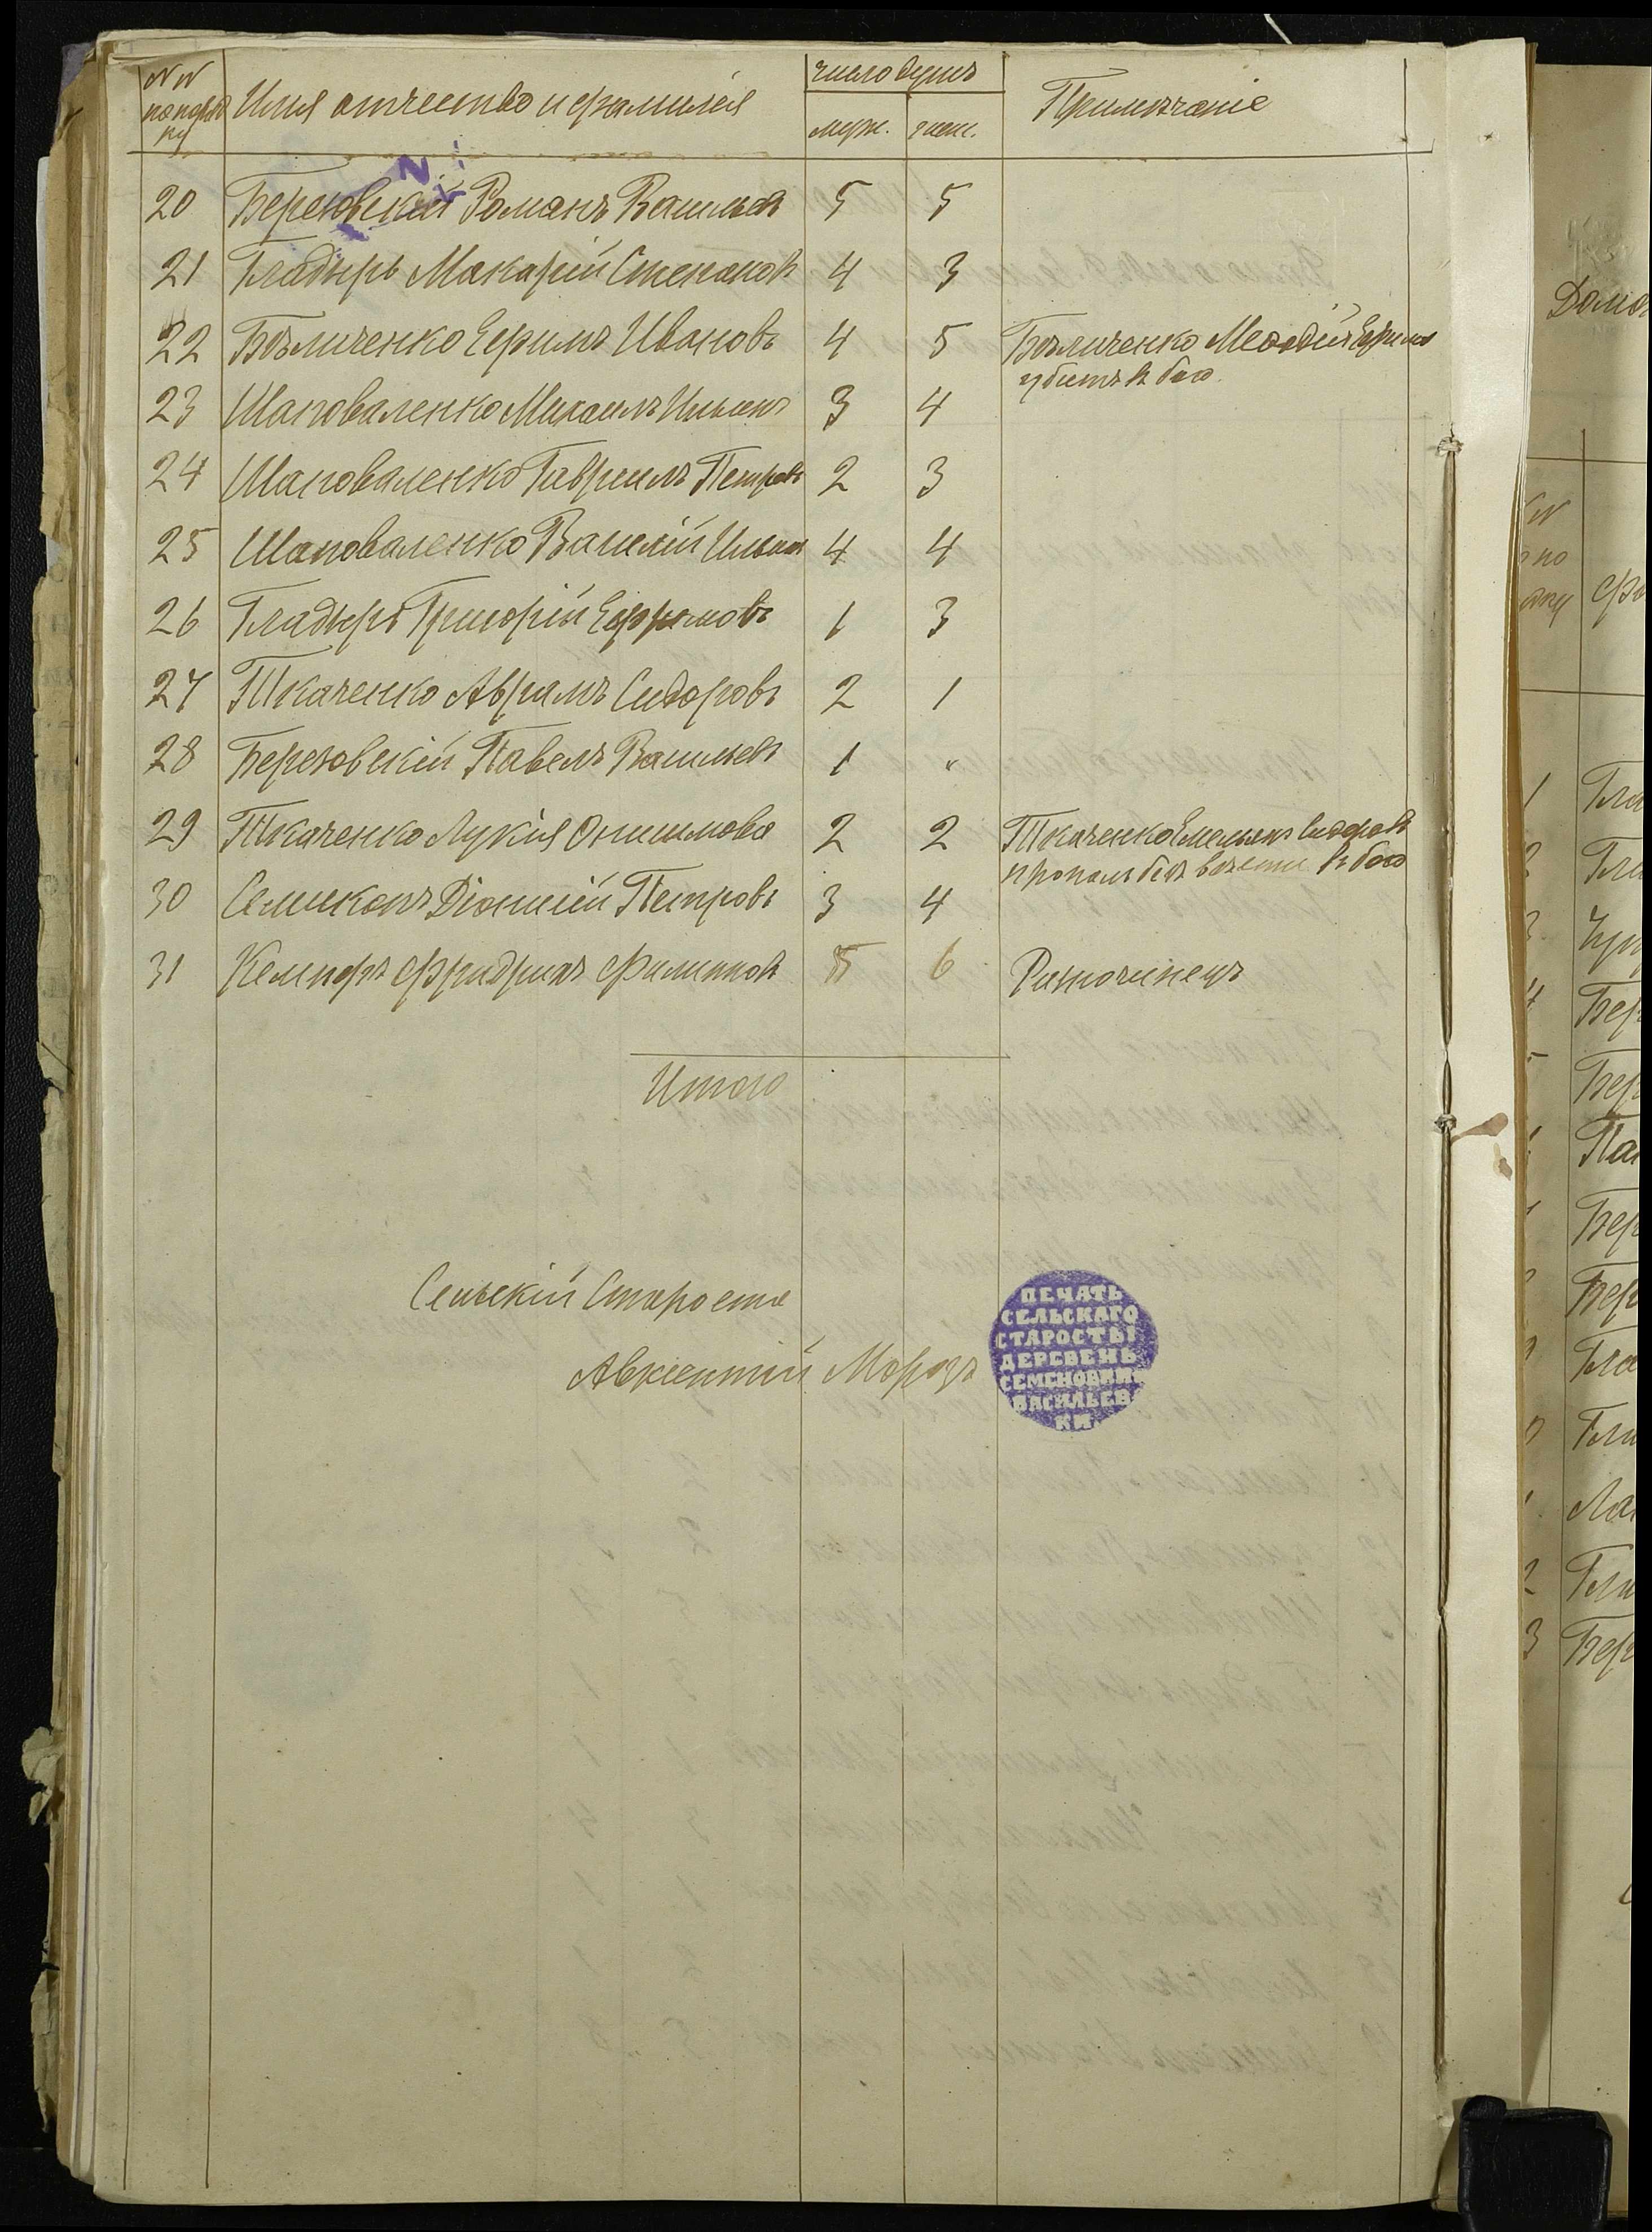 NN по порядку Имя отчество и фамилия число душъ Примѣчаніе
муж. жен.
20 Березовскій Романъ Васильев 5 5
21 Гладырь Макарій Степанов 4 3
22 Бѣличенко Ефимъ Ивановъ 4 5 Бѣличенко Меѳодій Ефимов
убитъ в бою.
23 Шаповаленко Михаилъ Ильинъ 3 4
24 Шаповаленко Гавриилъ Петровъ 2 3
25 Шаповаленко Василій Ильин 4 4
26 Гладырь Григорій Ефимовъ 1 3
27 Ткаченко Аврамъ Сидоровъ 2 1
28 Березовскій Павелъ Васильев 1 "
29 Ткаченко Лукія Онисимова 2 2 Ткаченко Емельян Сидоров
пропалъ без вѣсти в бою
30 Семиконъ Діонисій Петровъ 3 4
31 Кемпфъ Фридрих Филиппов 5 6 Разночинецъ
Итого
Сельскій Староста
Авксентій Морозъ
ПЕЧАТЬ
СЕЛЬСКАГО
СТАРОСТЫ
ДЕРЕВЕНЬ
ВАСИЛЬЕВ
КИ.